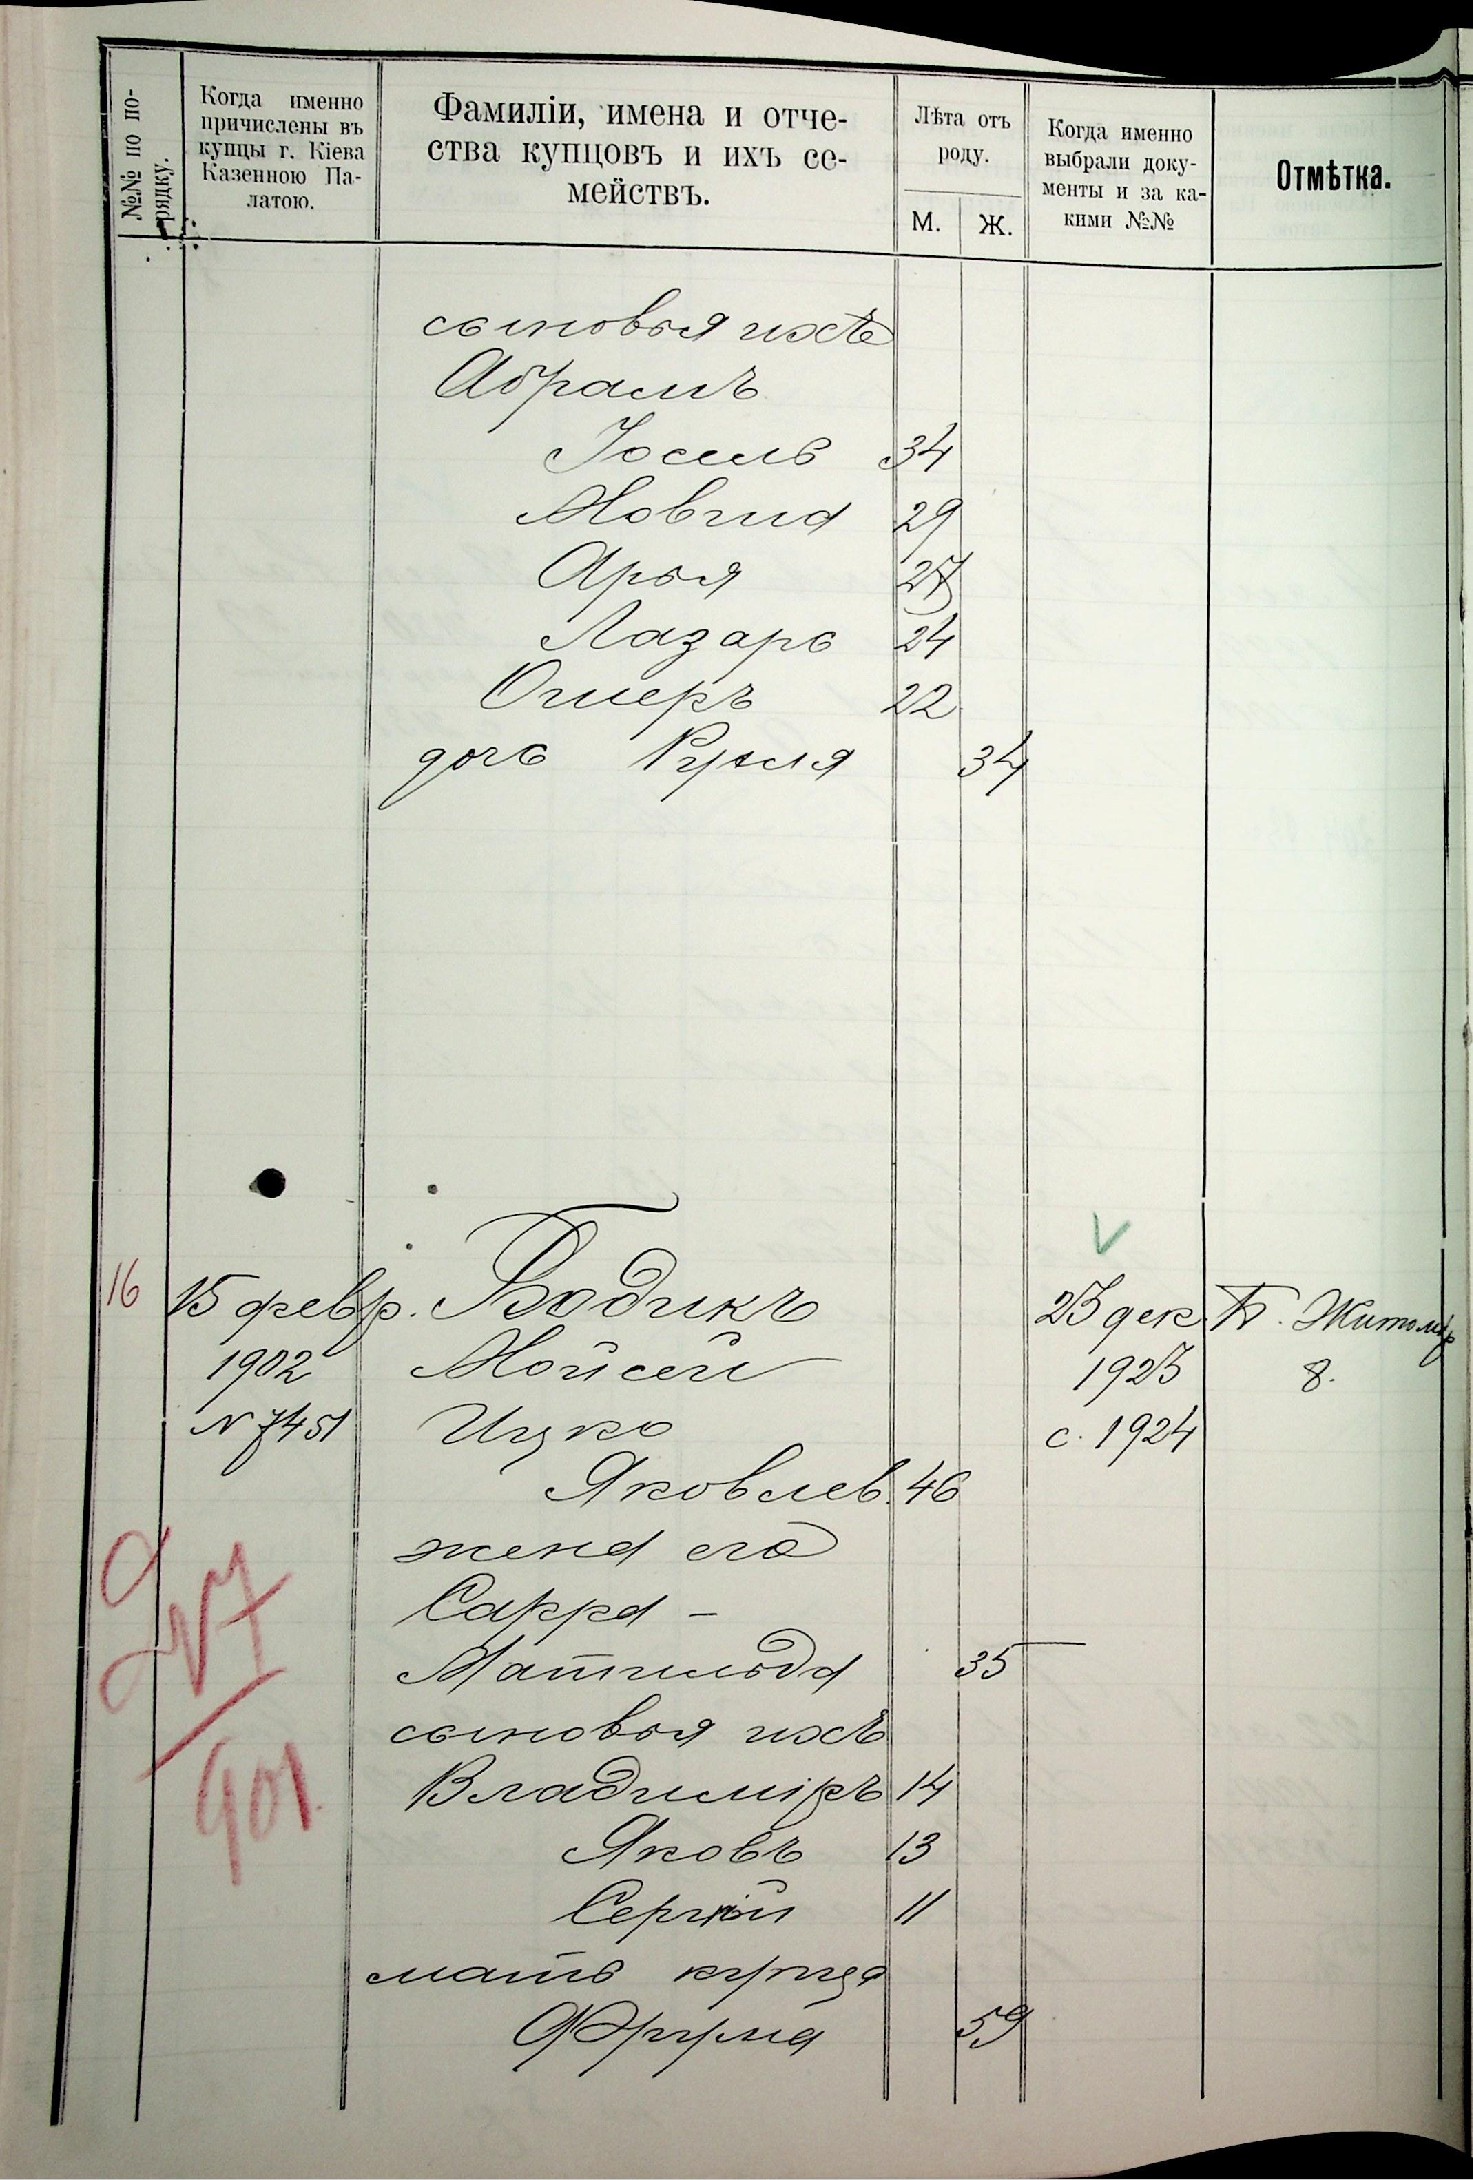 №№ по по-
рядку.
Когда именно
причислены въ
купцы г. Кіева
Казенною Па-
латою.
Фамиліи, имена и отче-
ства купцовъ и ихъ се-
мействъ.
Лѣта отъ
роду.
М. Ж.
Когда именно
выбрали доку-
менты и за ка-
кими №№
Отмѣтка.
сыновья ихъ
Абрамъ
Іосель 34
Мовша 29
Арья 27
Лазарь 24
Ошеръ 22
дочь Рухля 34
16 15 февр. Бадикъ 23 дек Б. Житомір
1902 Мойсей 1923 8.
N 7451 Ицко с. 1924
Яковлев. 46
жена его
Сарра -
Матильда 35
сыновья ихъ
Владиміръ 14
Яковъ 13
Сергѣй 11
мать купца
Фрума 59
901.